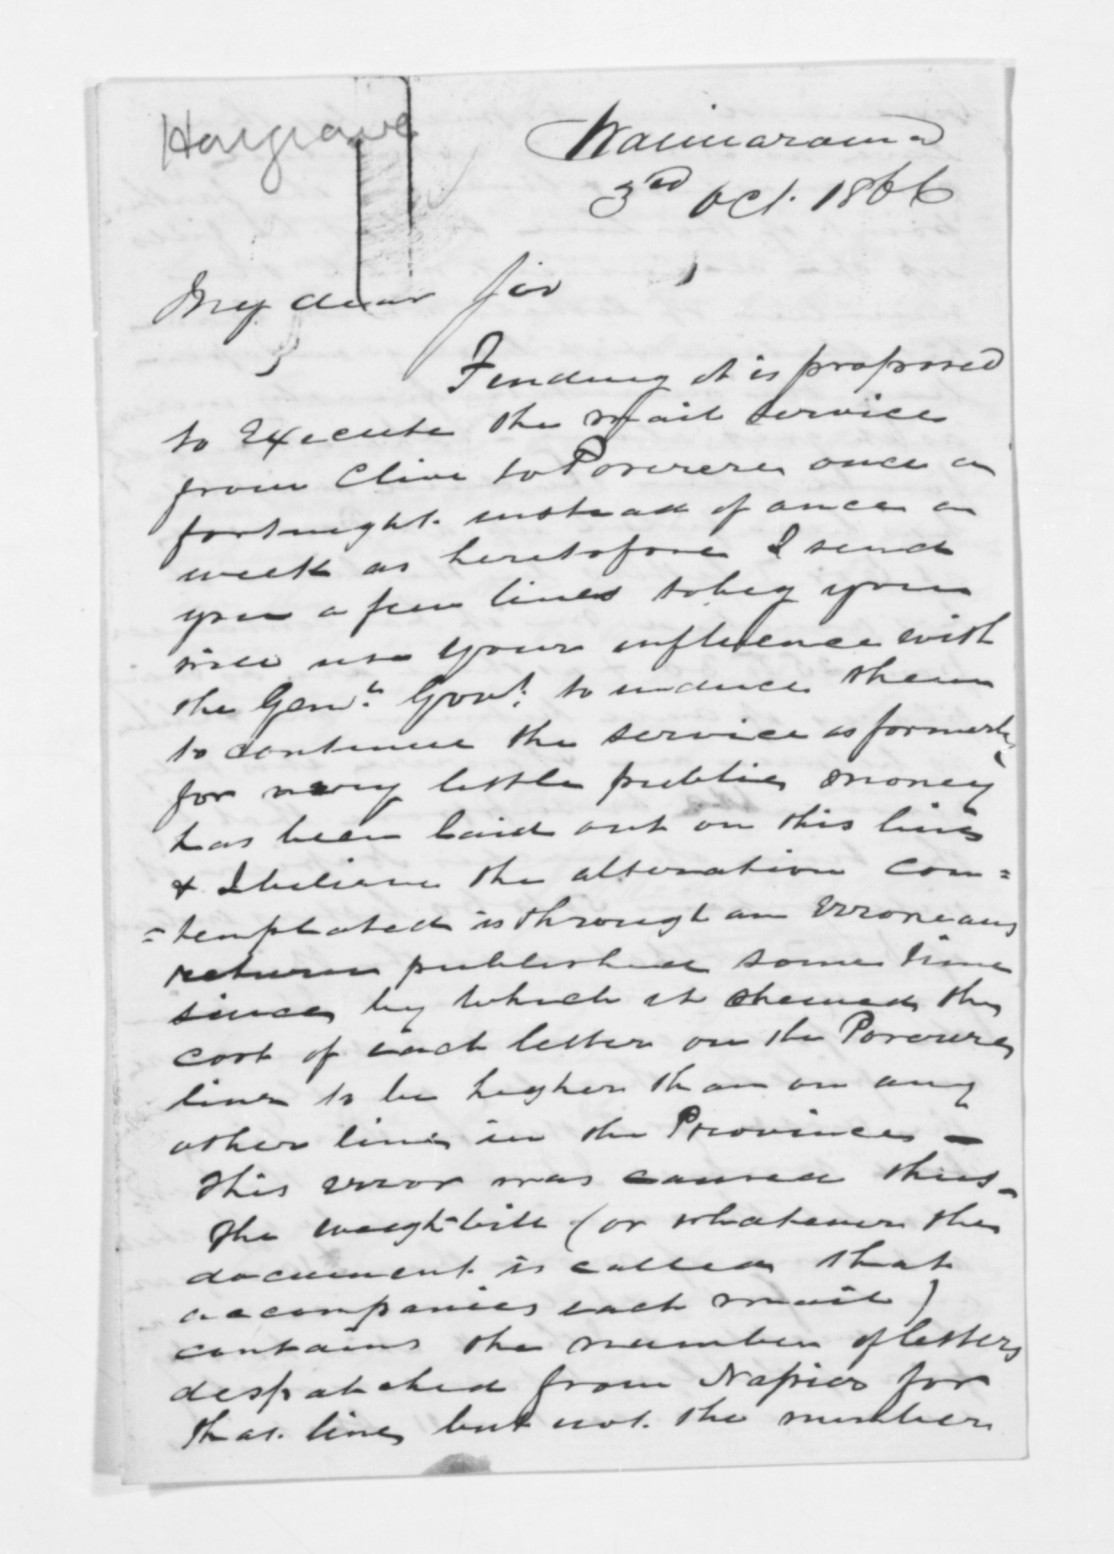 Hargrave
Waimarama
3rd Oct. 1866
My dear Sir
Finding it is proposed
to execute the mail service
from Clive to Porerere once a
fortnight instead of once a
week as heretofore I send
you a few lines to beg you
will use your influence with
the Genl. Govt. to induce them
to continue the service as formerly
for very little public money
has been laid out on this line
& I believe the alteration con=
=templated is through an erroneous
return published some time
since by which it shewed the
cost of each letter on the Porerere
line to be higher than on any
other line in the Province -
This error was caused thus -
The weigh-bill (or whatever the
document is called that
accompanies each mail)
contains the number of letters
despatched from Napier for
that line, but not the number